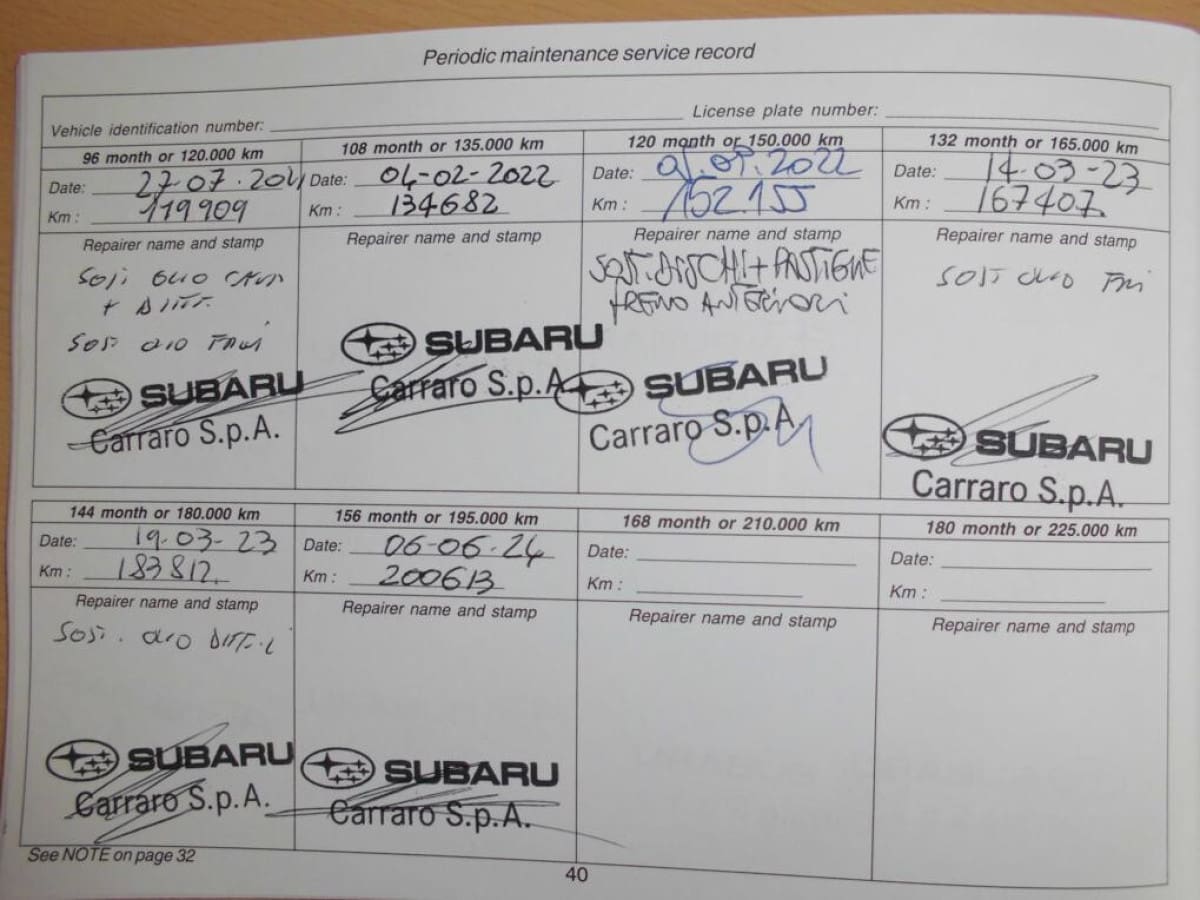 Periodic maintenance service record
Vehicle identification number:
License plate number:
96 month or 120.000 km
Date: 27-07.2021
Km : 119909
Repairer name and stamp
SOST OLIO CAMBIO
+ DIFF.
SOST OLIO FRENI
SUBARU
Carraro S.p.A.
108 month or 135.000 km
Date: 04-02-2022
Km : 134682
Repairer name and stamp
SUBARU
Carraro S.p.A.
120 month or 150.000 km
Date: 01.09.2022
Km : 152.155
Repairer name and stamp
SOST. DISCHI + PASTIGLIE
TRENO ANTERIORI
SUBARU
Carraro S.p.A.
132 month or 165.000 km
Date: 14-03-23
Km : 167407
Repairer name and stamp
SOST OLIO FRENI
SUBARU
Carraro S.p.A.
144 month or 180.000 km
Date: 19-03-23
Km : 183812
Repairer name and stamp
SOST. OLIO DIFF.LI
SUBARU
Carraro S.p.A.
156 month or 195.000 km
Date: 06-06-24
Km : 200613
Repairer name and stamp
SUBARU
Carraro S.p.A.
168 month or 210.000 km
Date:
Km :
Repairer name and stamp
180 month or 225.000 km
Date:
Km :
Repairer name and stamp
See NOTE on page 32
40